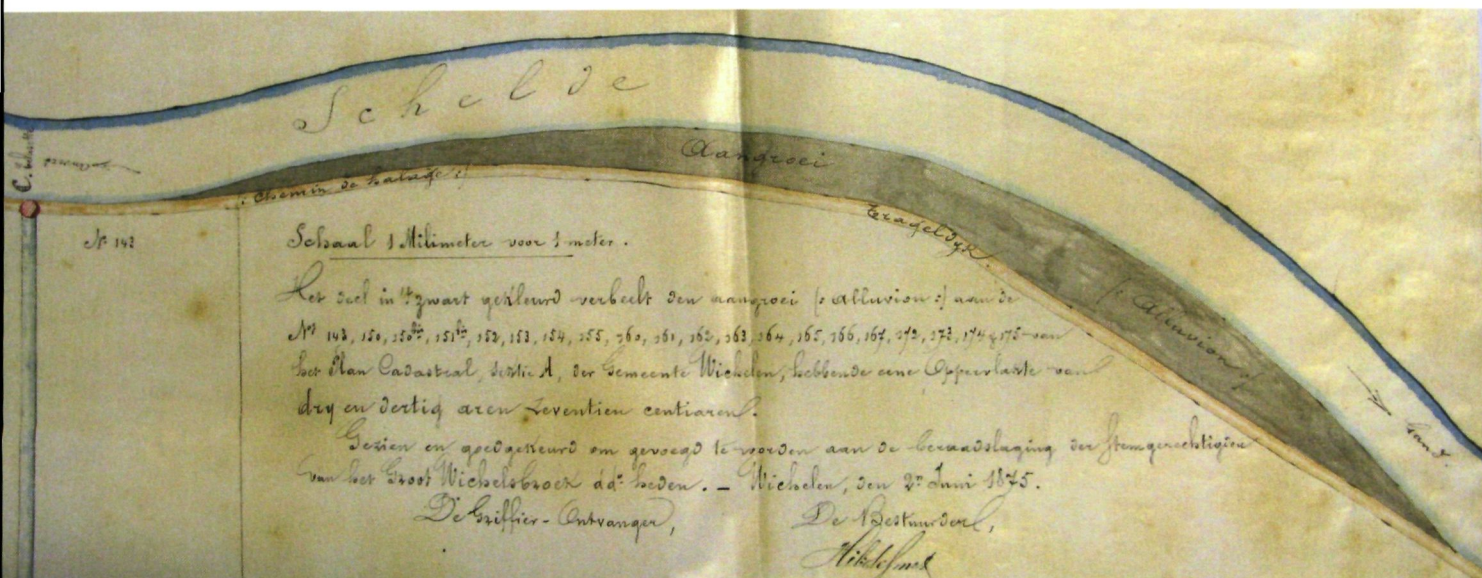 Schelde
Aangroei
(: Chemin de halage :)
Trageldyk
(: Alluvion :)
Gand.
N° 143
Schaal 1 Milimeter voor 1 meter.
Het deel in 't zwart gekleurd verbeelt den aangroei (: alluvion :) aan de
Nrs 143, 150, 150bis, 151bis, 152, 153, 154, 155, 160, 161, 162, 163, 164, 165, 166, 167, 172, 173, 174 & 175 van
het Plan Cadastral, sektie A, der Gemeente Wichelen, hebbende eene Oppervlakte van
dry en dertig aren zeventien centiaren.
Gezien en goedgekeurd om gevoegd te worden aan de beraadslaging der stemgerechtigden
van het Groot Wichelsbroek dd° heden. – Wichelen, den 2n Juni 1875.
De Griffier-Ontvanger,
De Bestuurder,